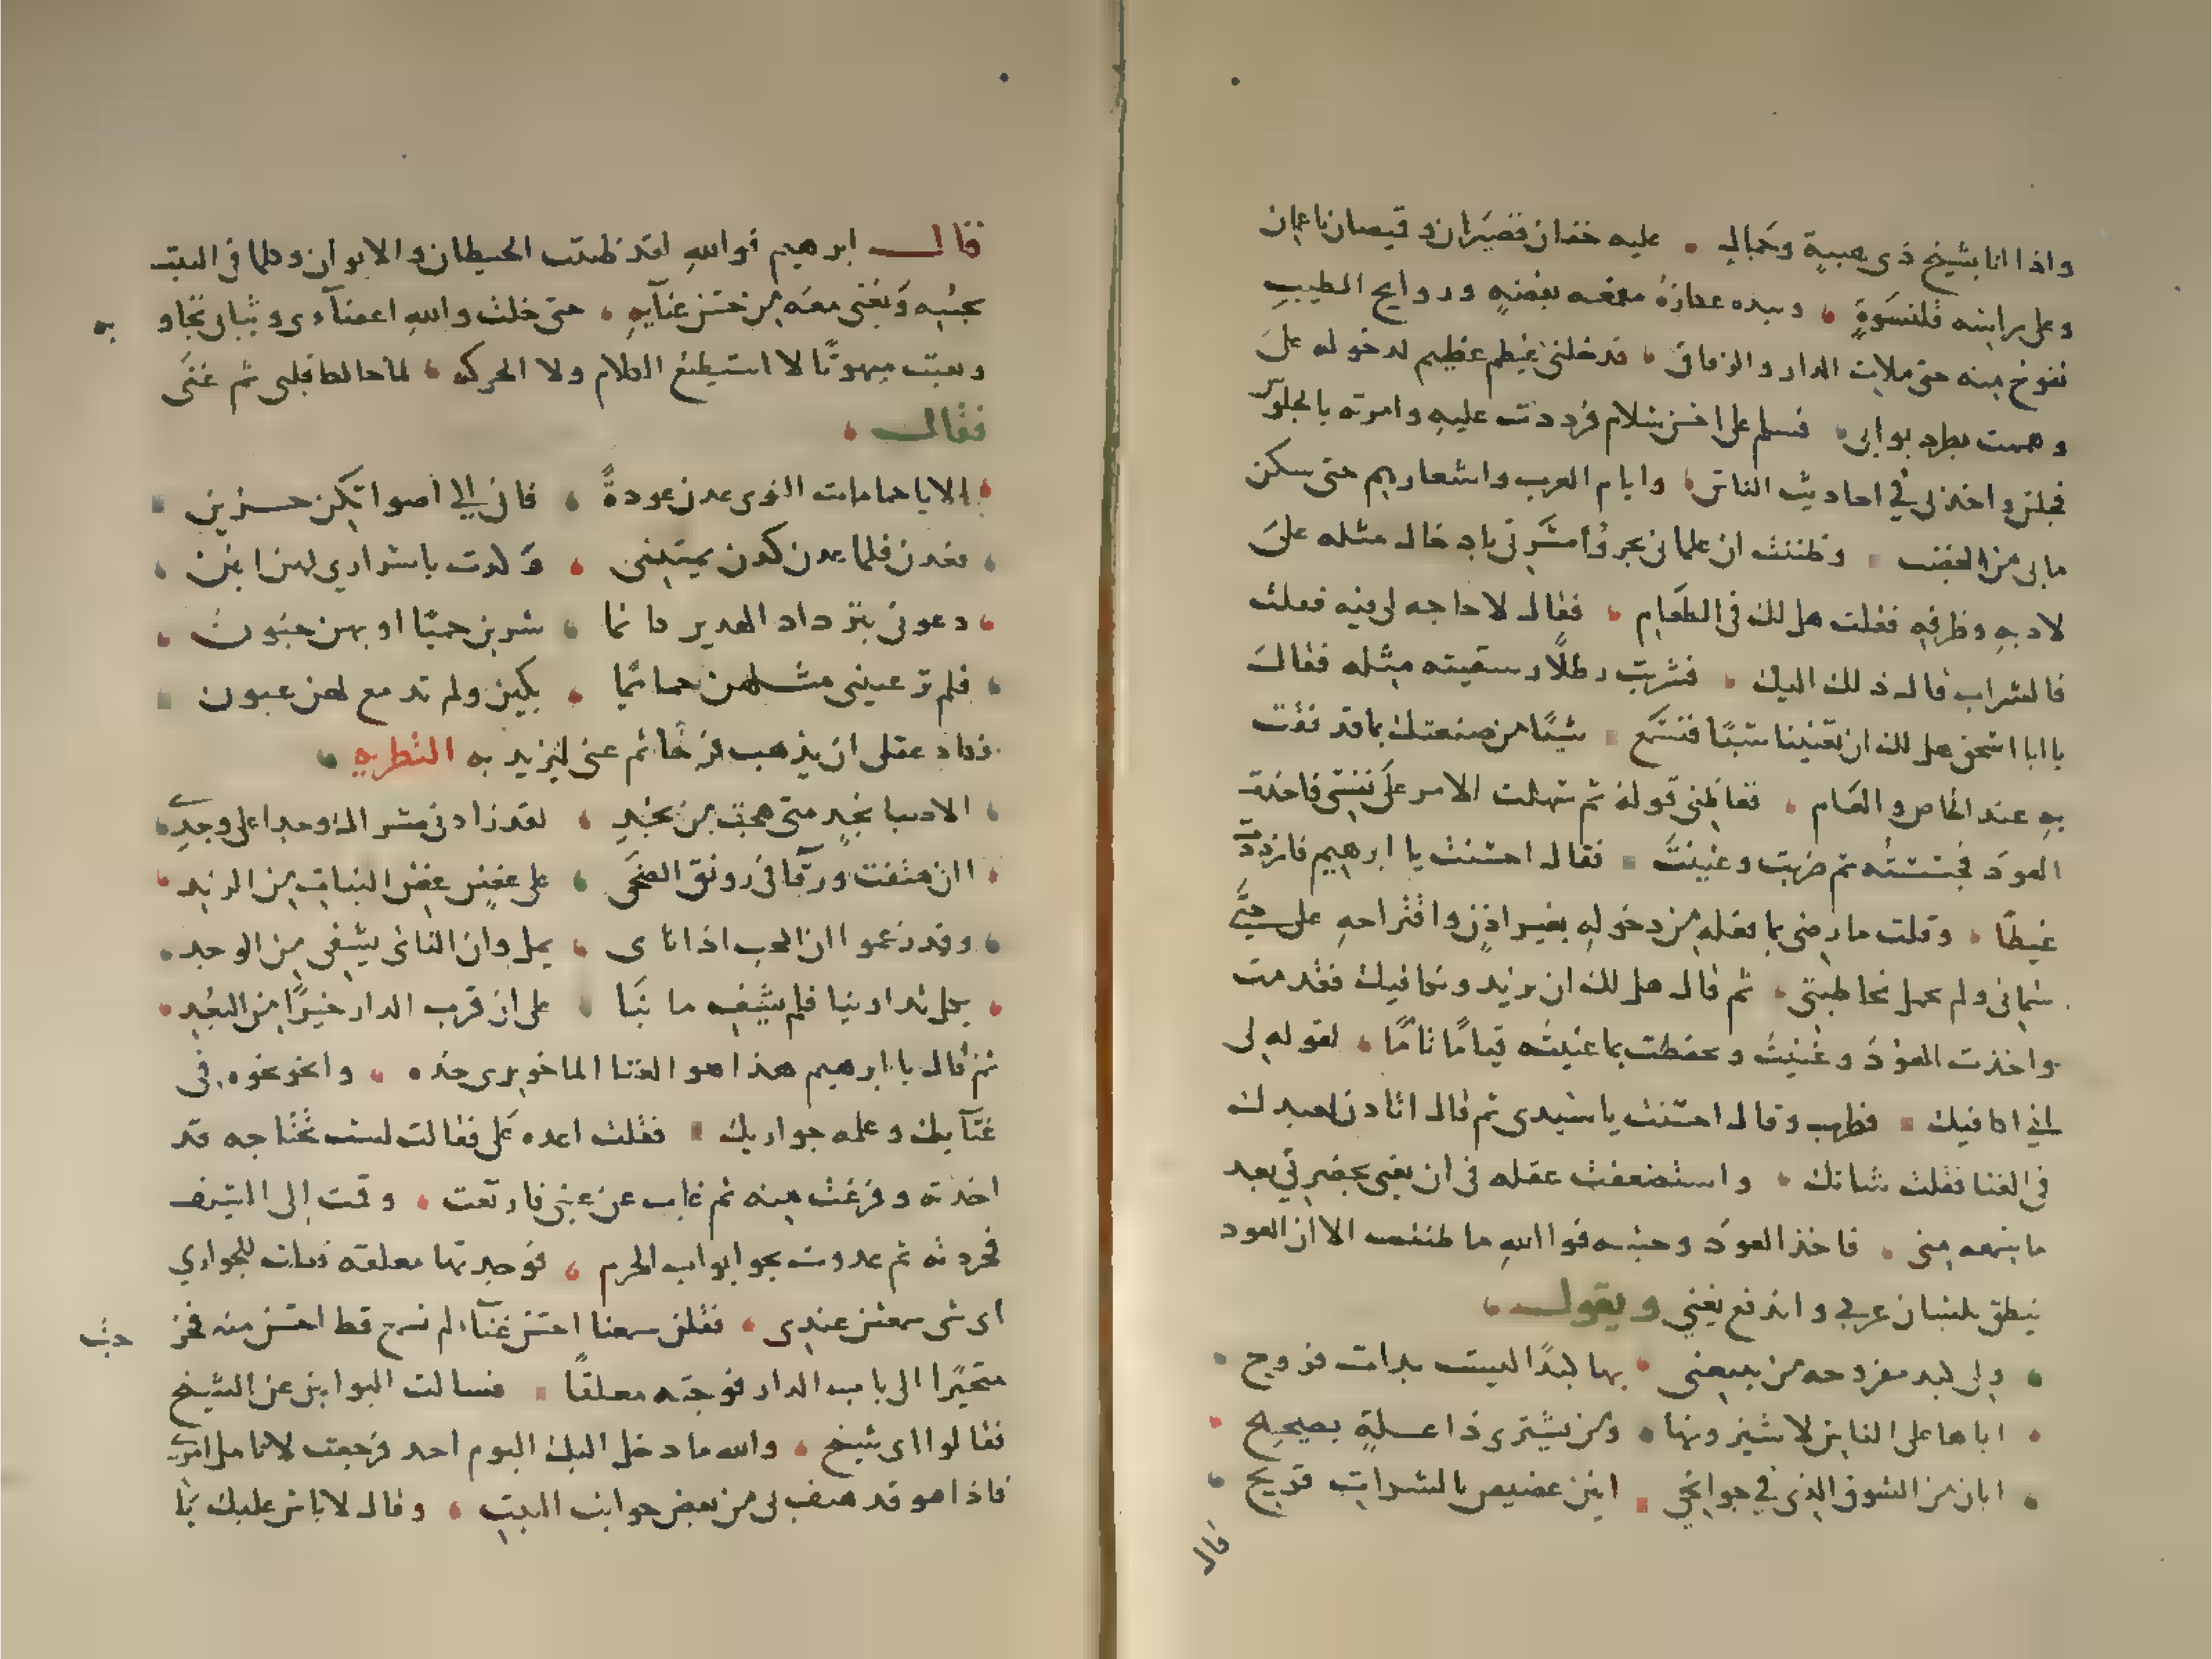 واذا انا بشيخ ذي هيبة وجمال عليه خفان قصيران وقميصان ناعمان
وعلى راسه قلنسوة وبيده عكازة مقمعه بفضه وروايح الطيب
تفوح منه حتى ملات الدار والزقاق فدخلني غيظ عظيم لدخوله علي
وهممت بطرد بوابي فسلم علي احسن سلام فرددت عليه وامرته بالجلوس
فجلس واخذ لي في احاديث الناس وايام العرب واشعارهم حتى سكن
مابي من الغضب وظننت ان غلماني تحروا مسرتي بادخال مثله علي
لادبه وظرفه فقلت هل لك في الطعام فقال لا حاجه لي فيه فقلت
فالشراب قال ذلك اليك فشربت رطلا وسقيته مثله فقال
يا ابا اسحق هل لك ان تغنينا شيا فنسمع شيئا من صنعتك بما قد نفقت
به عند الخاص والعام فغاظني قوله ثم سهلت الامر على نفسي فاخذت
العود فجسسته ثم ضربت وغنيت فقال احسنت يا ابرهيم فازددت
غيظا وقلت ما رضي بما فعله من دخوله بغير اذن واقتراحه علي حتى
سماني ولم يجمل مخاطبتي ثم قال هل لك ان تزيد ونكافيك فتقدمت
واخذت العود وغنيت وتحفظت بما غنيته قياما تاما لقوله لي
اني اكافيك فطرب وقال احسنت يا سيدي ثم قال اتاذن لعبدك
في الغنا فقلت شانك واستضعفت عقله في ان يغني بحضرتي بعد
ما سمعه مني فاخذ العود وجسه فوا الله ما ظننت الا ان العود
ينطق بلسان عربي واندفع يغني ويقول
ولي كبد مقروحه من يبيعني بها كبدا ليست بذات قروح
اباها على الناس لا يشترونها ومن يشتري ذا علة بصحيح
ائن من الشوق الذي في جوانحي انين غضيض بالشراب قريح
قال
قال ابرهيم فوالله لقد ظننت الحيطان والابواب وكلما في البيت
تجيبه وتغني معه من حسن غنآيه حتى خلت والله اعضآءي وثيابي تجاوبه
وبقيت مبهوتا لا استطيع الكلام ولا الحركه لما خالط قلبي ثم غنى
فقال
الا يا حمامات اللوى عدن عودة فاني الي اصواتكن حزين
فعدن فلما عدن كدن يمتنني وكدت باسراري لهن ابين
دعوني بترداد الهدير كانما شربن حميا او بهن جنون
فلم تر عيني مثلهن حمائما بكين ولم تدمع لهن عيون
فكاد عقلي ان يذهب فرحا ثم غنى ليزيد به التطريه
الا يا صبا نجد متى هجت من نجد لقد زادني مسراك وجدا على وجدي
اان هتفت ورقا في رونق الضحى على غصن غض النبات من الرند
وقد زعموا ان المحب اذا نأى يمل وان النائ يشفي من الوجد
بكل تداوينا فلم يشف ما بنا على ان قرب الدار خيرا من البعد
ثم قال يا ابرهيم هذا هو الغنا الماخوري خذه وانحو نحوه في
غنآيك وعلمه جواريك فقلت اعده علي فقالت لست تحتاجه قد
اخذته وفرغت منه ثم غاب عن عيني فارتعت وقمت الى السيف
فجردته ثم عدوت نحو ابواب الحرم فوجدتها مغلقه فقلت للجواري
اي شي سمعتن عندي فقلن سمعنا احسن غنآء لم نسمع قط احسن منه فخرجت
متحيرا الى باب الدار فوجدته مغلقا فسالت البوابين عن الشيخ
فقالوا اي شيخ والله ما دخل اليك اليوم احد فرجعت لاتامل امري
فاذا هو قد هتف لي من بعض جوانب البيت وقال لا باس عليك يا